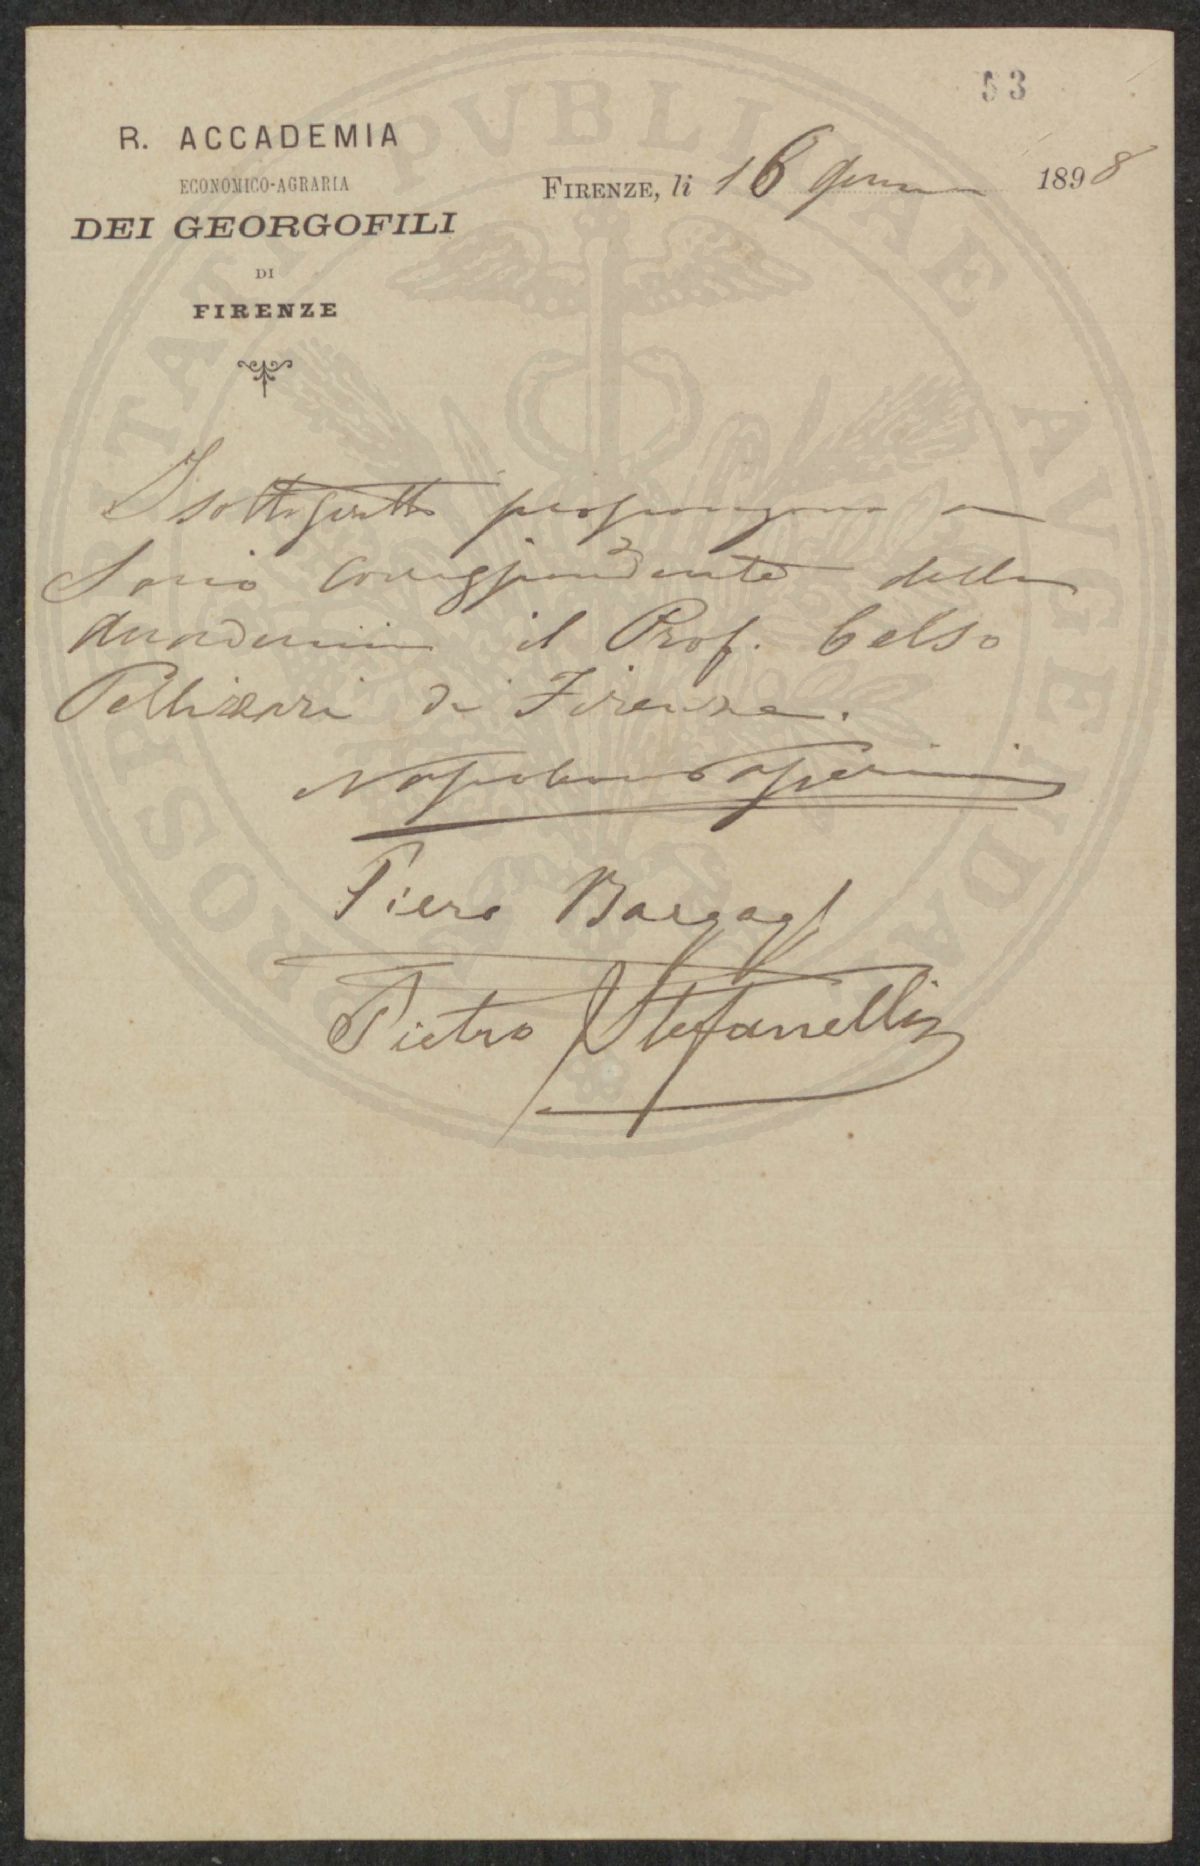 53
R. ACCADEMIA
ECONOMICO-AGRARIA
DEI GEORGOFILI
DI
FIRENZE
FIRENZE, li 16 1898
I sottoscritti propongono a
Socio Corrispondente della
Accademia il Prof. Celso
Pellizzari di Firenze.
Napoleone Passerini
Piero Bargagli
Pietro Stefanelli
PROSPERITATI PVBLICAE AVGENDAE